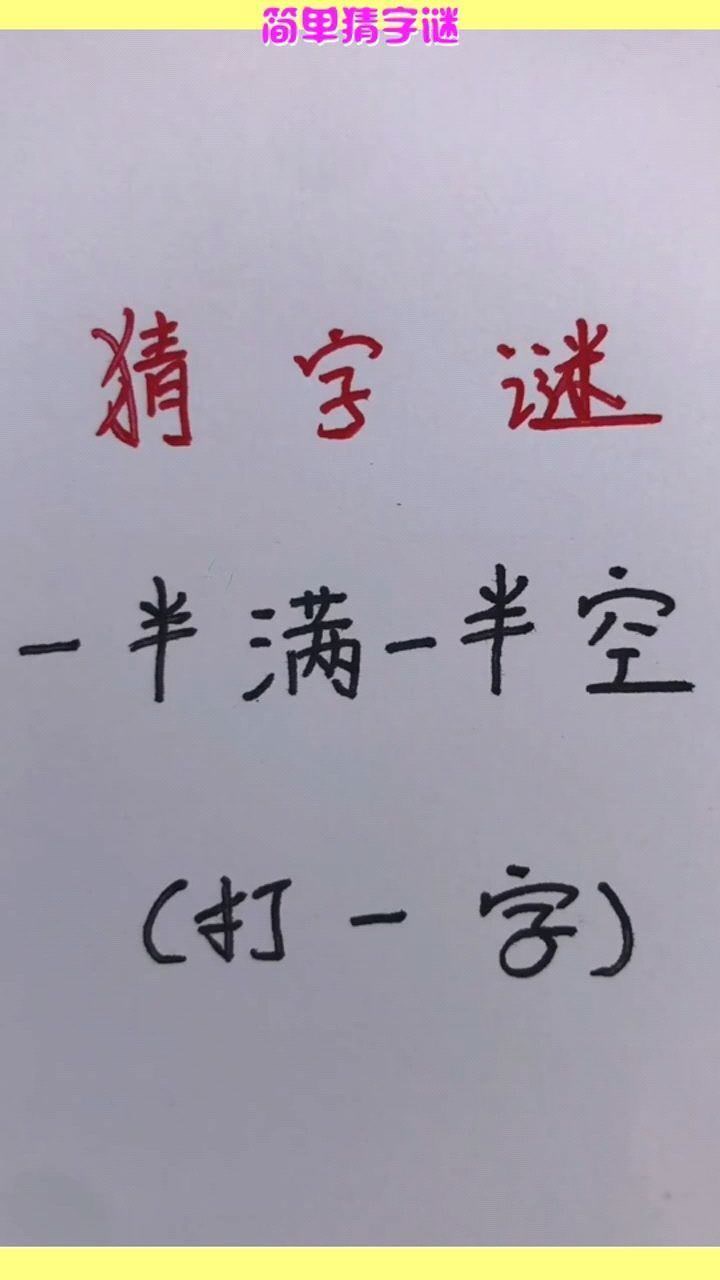 简单猜字谜
猜字谜
一半满一半空
(打一字)